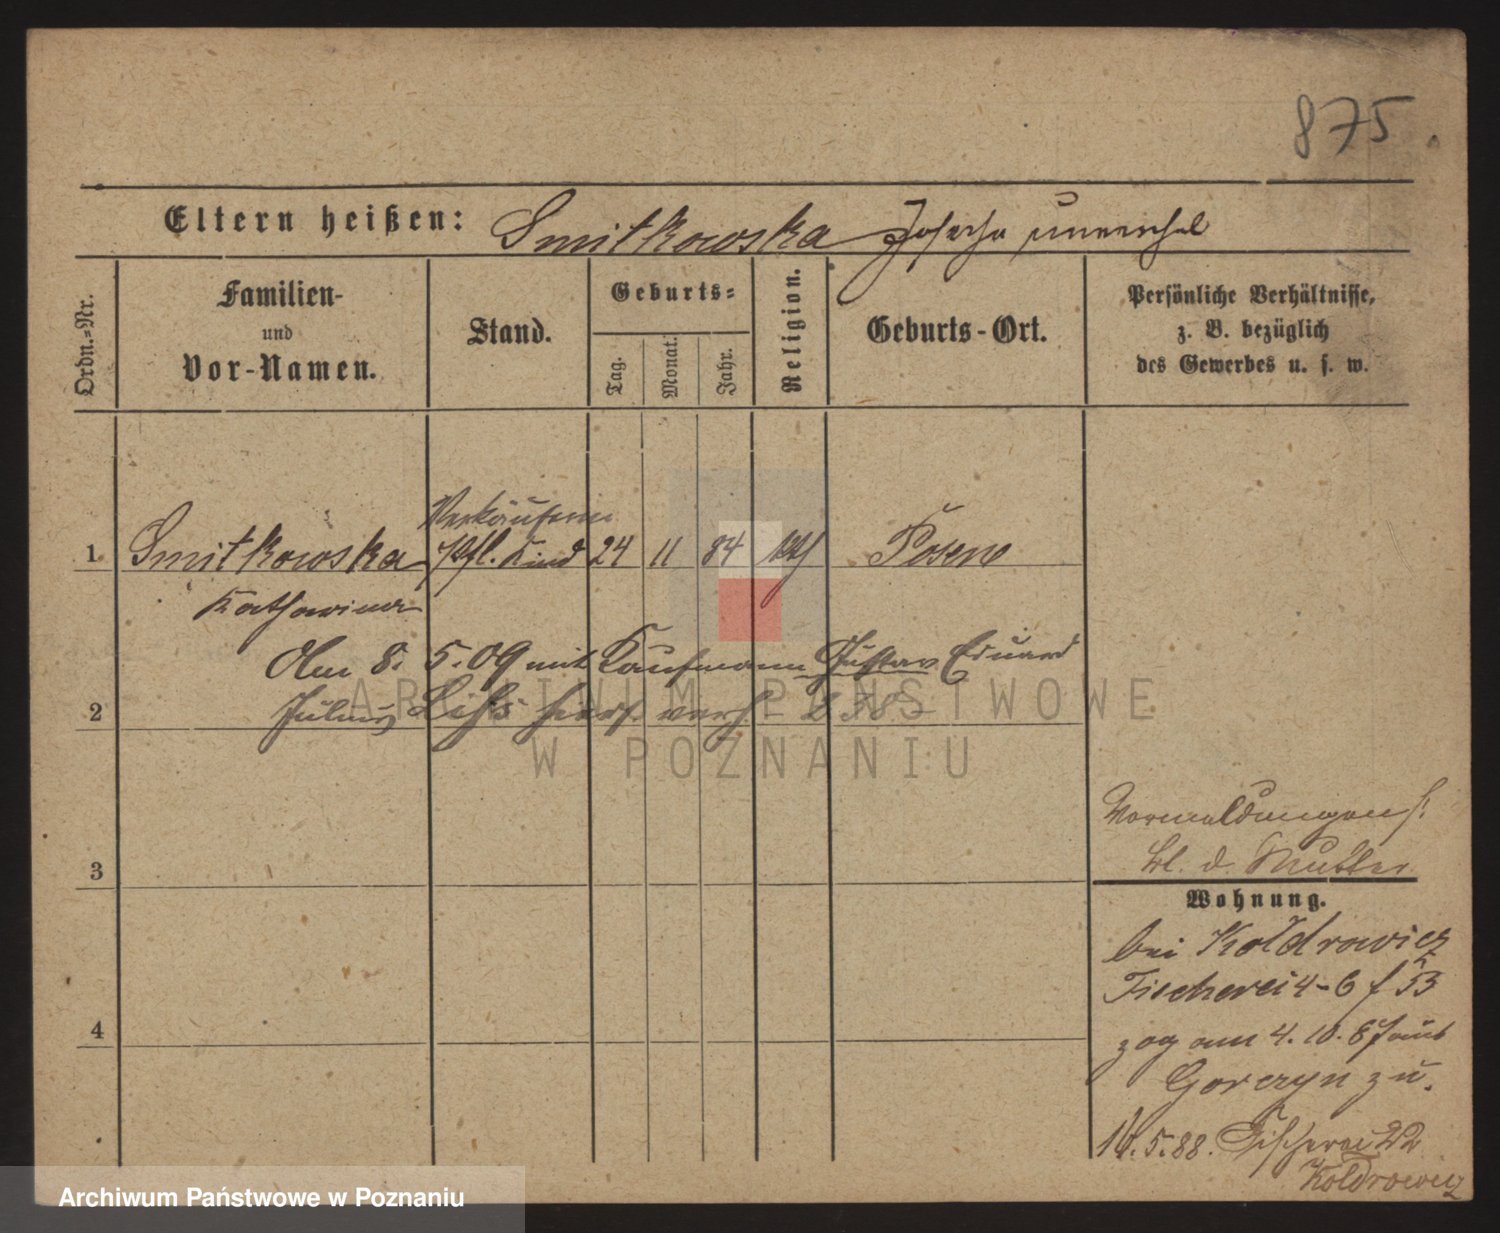 875.
Eltern heißen: Smitkowska Josepha unverehel
Ordn.=Nr.
Familien-
und
Vor-Namen.
Stand.
Geburts=
Tag.
Monat.
Jahr.
Religion.
Geburts-Ort.
Persönliche Verhältnisse,
z. B. bezüglich
des Gewerbes u. s. w.
Verkäuferin
1 Smitkowska Pfl. Kind 24 11 84 kth Posen
Katharina
Am 8. 5. 09 mit Kaufmann Gustav Eduard
2 Julius hier verh
ARCHIWUM PAŃSTWOWE
W POZNANIU
3
Vormeldungen s.
bl. d. Mutter
Wohnung.
bei Koldrowicz
Fischerei 4-6
4
zog am 4. 10.
Gorczyn zu.
5. 88. Fischerei 22
Koldrowicz
Archiwum Państwowe w Poznaniu